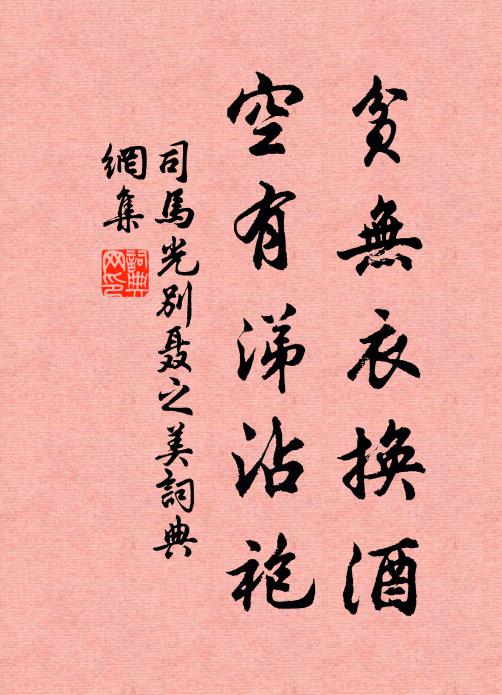 貧無衣換酒
空有涕沾袍
司馬光別聂之美詞典
網集
詞典
网印